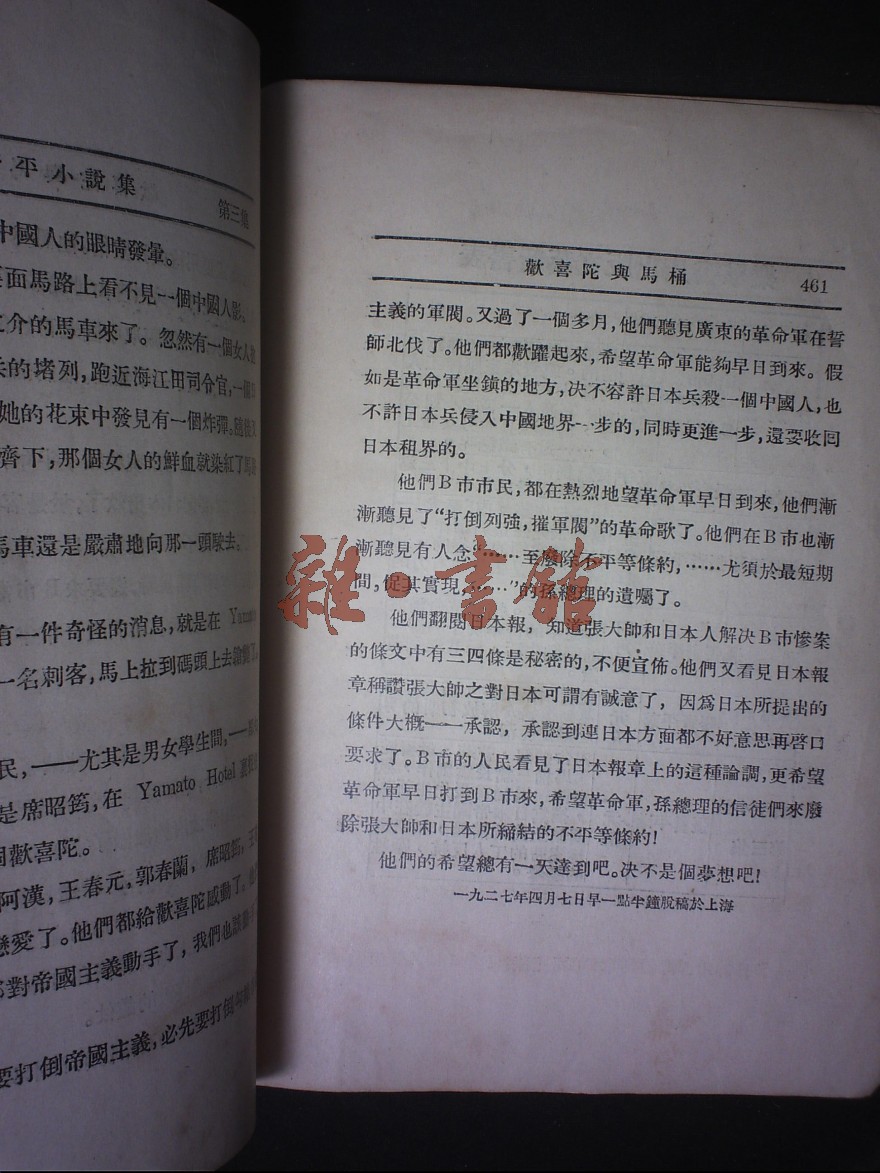 平小說集
第三集
中國人的眼睛發暈。
面馬路上看不見一個中國人影。
之介的馬車來了。忽然有一個女人
兵的堵列，跑近海江田司令官，一個
她的花束中發見有一個炸彈。
齊下，那個女人的鮮血就染紅了馬
馬車還是嚴肅地向那一頭駛去。
有一件奇怪的消息，就是在 Yamato
一名刺客，馬上拉到碼頭上去
民，——尤其是男女學生間，——
是席昭筠，在 Yamato Hotel
個歡喜陀。
阿漢，王春元，郭春蘭，席昭筠，王
戀愛了。他們都給歡喜陀感動了。
對帝國主義動手了，我們也
要打倒帝國主義，必先要打倒
歡喜陀與馬桶
461
主義的軍閥。又過了一個多月，他們聽見廣東的革命軍在誓
師北伐了。他們都歡躍起來，希望革命軍能夠早日到來。假
如是革命軍坐鎮的地方，决不容許日本兵殺一個中國人，也
不許日本兵侵入中國地界一步的，同時更進一步，還要收回
日本租界的。
他們B市市民，都在熱烈地望革命軍早日到來，他們漸
漸聽見了“打倒列強，摧軍閥”的革命歌了。他們在B市也漸
漸聽見有人念“……至廢除不平等條約，……尤須於最短期
間，促其實現，……”的孫總理的遺囑了。
他們翻閱日本報，知道張大帥和日本人解决B市慘案
的條文中有三四條是秘密的，不便宣佈。他們又看見日本報
章稱讚張大帥之對日本可謂有誠意了，因爲日本所提出的
條件大概一一承認，承認到連日本方面都不好意思再啓口
要求了。B市的人民看見了日本報章上的這種論調，更希望
革命軍早日打到B市來，希望革命軍，孫總理的信徒們來廢
除張大帥和日本所締結的不平等條約！
他們的希望總有一天達到吧。决不是個夢想吧！
一九二七年四月七日早一點半鐘脫稿於上海
雜·書館